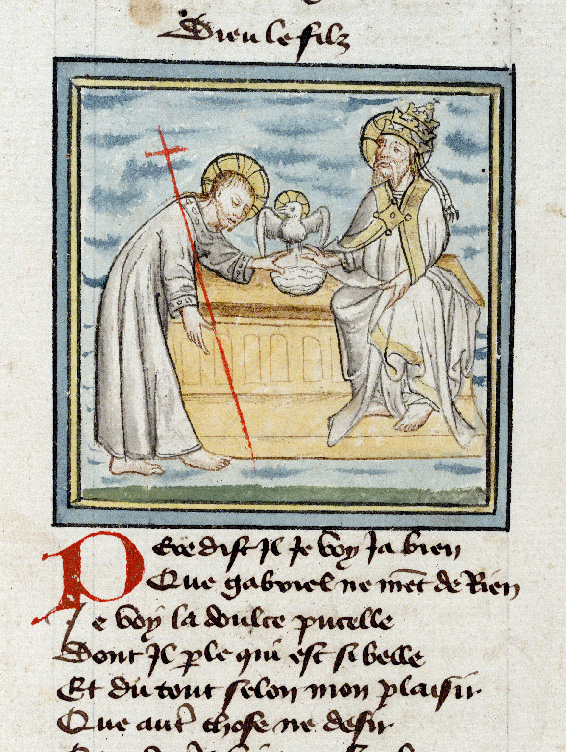 Dieu le filz
Pere dist Il Je voy Ja bien
Que gabriel ne met de Rien
Je voy la doulce pucelle
Dont Il ꝑle qui est si belle
Et du tout selon mon plaisir
Que autꝰ chose ne desir